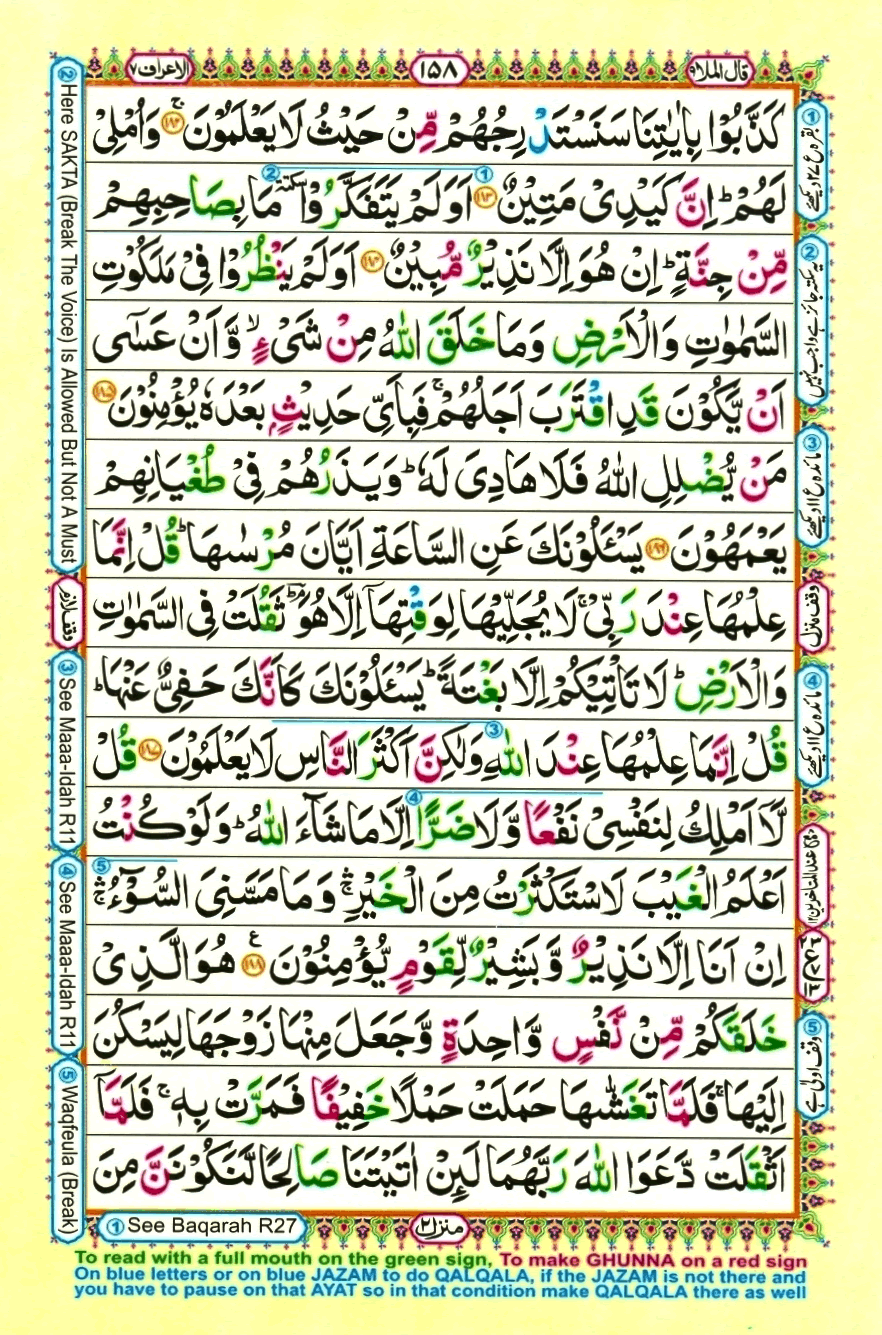 قال الملا ٩
١٥٨
الاعراف ٧
كَذَّبُوْا بِاٰيٰتِنَا سَنَسْتَدْرِجُهُمْ مِّنْ حَيْثُ لَا يَعْلَمُوْنَ ۚ ﴿١٨٢﴾ وَاُمْلِىْ
لَهُمْ ؕ اِنَّ كَيْدِىْ مَتِيْنٌ ﴿١٨٣﴾ اَوَلَمْ يَتَفَكَّرُوْا سكتة مَا بِصَاحِبِهِمْ
مِّنْ جِنَّةٍ ؕ اِنْ هُوَ اِلَّا نَذِيْرٌ مُّبِيْنٌ ﴿١٨٤﴾ اَوَلَمْ يَنْظُرُوْا فِىْ مَلَكُوْتِ
السَّمٰوٰتِ وَالْاَرْضِ وَمَا خَلَقَ اللّٰهُ مِنْ شَىْءٍ ۙ وَّاَنْ عَسٰٓى
اَنْ يَّكُوْنَ قَدِ اقْتَرَبَ اَجَلُهُمْ ۚ فَبِاَىِّ حَدِيْثٍۭ بَعْدَهٗ يُؤْمِنُوْنَ ﴿١٨٥﴾
مَنْ يُّضْلِلِ اللّٰهُ فَلَا هَادِىَ لَهٗ ؕ وَيَذَرُهُمْ فِىْ طُغْيَانِهِمْ
يَعْمَهُوْنَ ﴿١٨٦﴾ يَسْـَٔلُوْنَكَ عَنِ السَّاعَةِ اَيَّانَ مُرْسٰىهَا ؕ قُلْ اِنَّمَا
عِلْمُهَا عِنْدَ رَبِّىْ ۚ لَا يُجَلِّيْهَا لِوَقْتِهَاۤ اِلَّا هُوَ ؕ ثَقُلَتْ فِى السَّمٰوٰتِ
وَالْاَرْضِ ؕ لَا تَاْتِيْكُمْ اِلَّا بَغْتَةً ؕ يَسْـَٔلُوْنَكَ كَاَنَّكَ حَفِىٌّ عَنْهَا ؕ
قُلْ اِنَّمَا عِلْمُهَا عِنْدَ اللّٰهِ وَلٰكِنَّ اَكْثَرَ النَّاسِ لَا يَعْلَمُوْنَ ﴿١٨٧﴾ قُلْ
لَّاۤ اَمْلِكُ لِنَفْسِىْ نَفْعًا وَّلَا ضَرًّا اِلَّا مَا شَآءَ اللّٰهُ ؕ وَلَوْ كُنْتُ
اَعْلَمُ الْغَيْبَ لَاسْتَكْثَرْتُ مِنَ الْخَيْرِ ۛۚ وَمَا مَسَّنِىَ السُّوْٓءُ ۛۚ
اِنْ اَنَا اِلَّا نَذِيْرٌ وَّبَشِيْرٌ لِّقَوْمٍ يُّؤْمِنُوْنَ ﴿١٨٨﴾ ع هُوَ الَّذِىْ
خَلَقَكُمْ مِّنْ نَّفْسٍ وَّاحِدَةٍ وَّجَعَلَ مِنْهَا زَوْجَهَا لِيَسْكُنَ
اِلَيْهَا ۚ فَلَمَّا تَغَشّٰىهَا حَمَلَتْ حَمْلًا خَفِيْفًا فَمَرَّتْ بِهٖ ۚ فَلَمَّاۤ
اَثْقَلَتْ دَّعَوَا اللّٰهَ رَبَّهُمَا لَئِنْ اٰتَيْتَنَا صَالِحًا لَّنَكُوْنَنَّ مِنَ
② Here SAKTA (Break The Voice) Is Allowed But Not A Must
وقف لازم
③ See Maaa-Idah R11
④ See Maaa-Idah R11
⑤ Waqfeula (Break)
① See Baqarah R27
منزل ٢
① بقرہ ع ٢٧ دیکھئے
② یہ سکتہ جائز ہے واجب نہیں
③ مائدہ ع ١١ دیکھئے
وقف منزل
④ مائدہ ع ١١ دیکھئے
⑤ وقف اولیٰ ہے
To read with a full mouth on the green sign, To make GHUNNA on a red sign
On blue letters or on blue JAZAM to do QALQALA, if the JAZAM is not there and
you have to pause on that AYAT so in that condition make QALQALA there as well